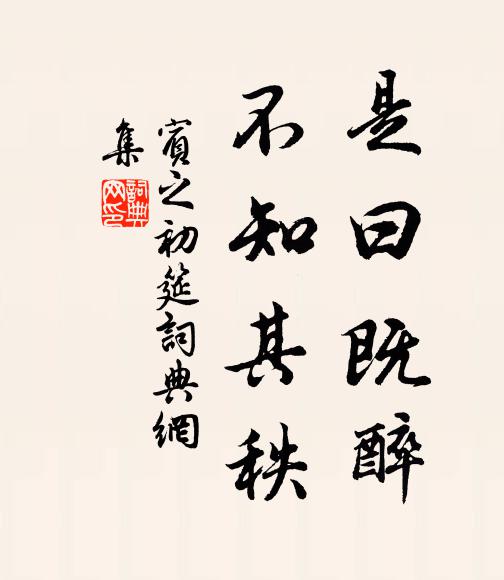 是曰既醉
不知其秩
賓之初筵詞典網
集
詞典网印